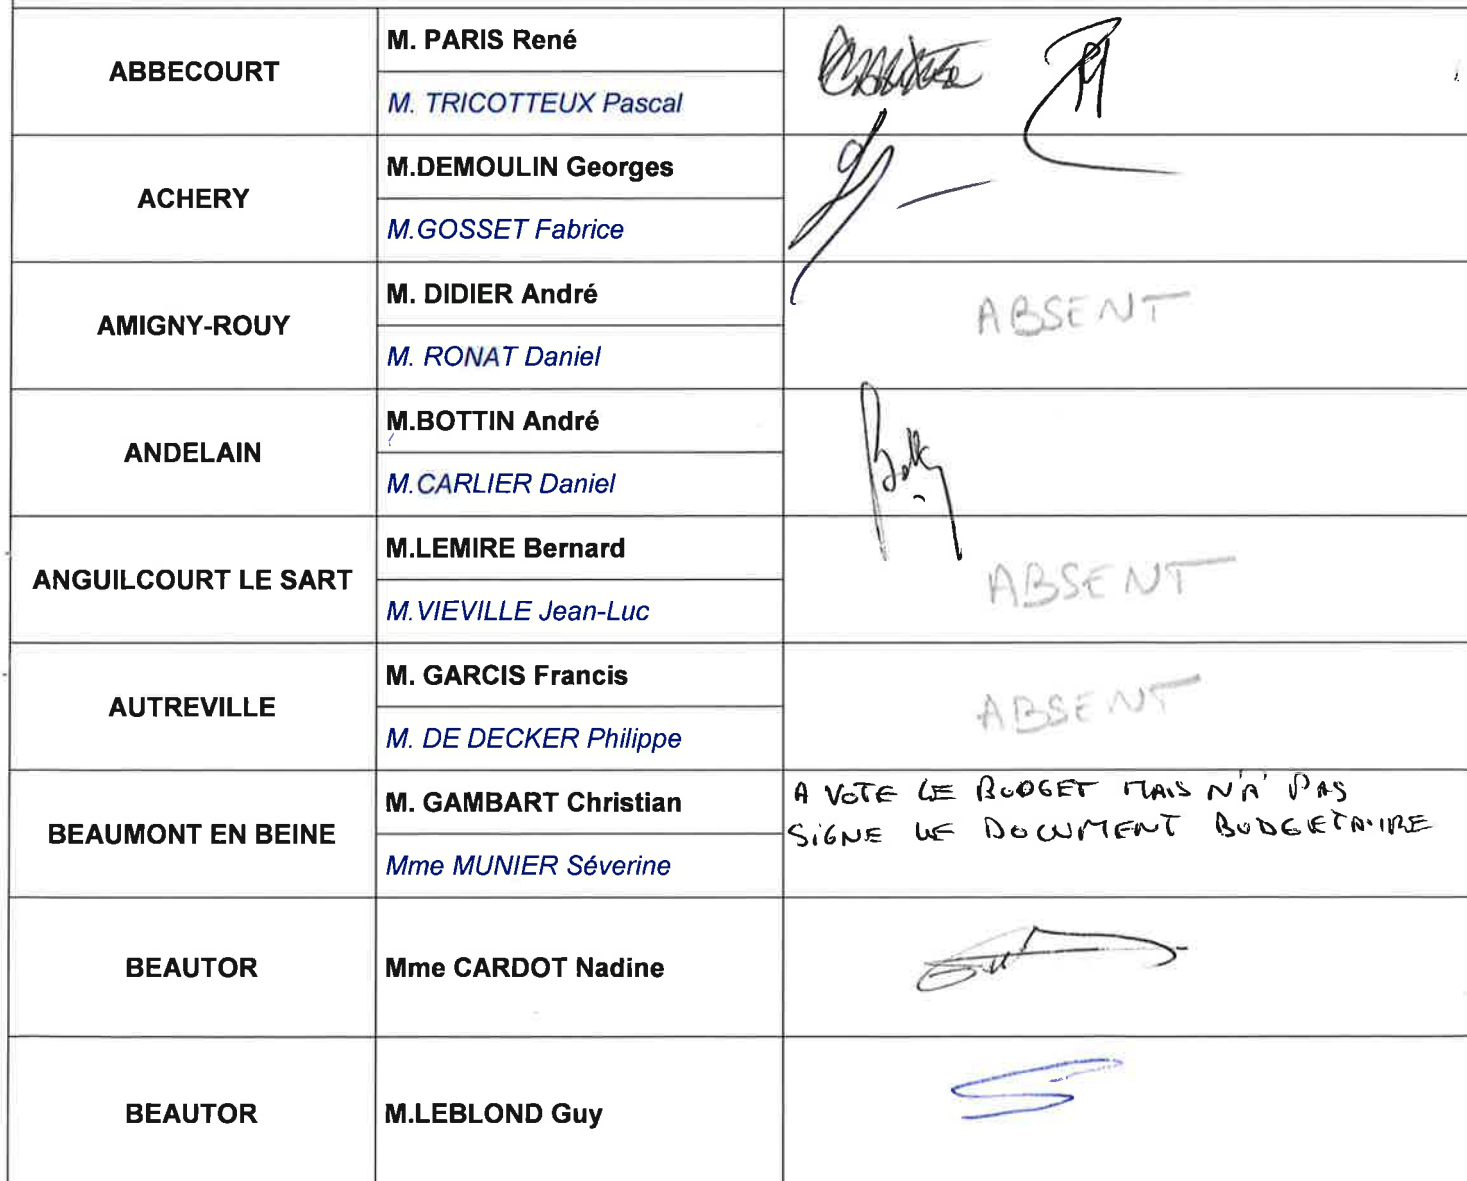 ABBECOURT
M. PARIS René
M. TRICOTTEUX Pascal
ACHERY
M.DEMOULIN Georges
M.GOSSET Fabrice
AMIGNY-ROUY
M. DIDIER André
M. RONAT Daniel
ABSENT
ANDELAIN
M.BOTTIN André
M.CARLIER Daniel
ANGUILCOURT LE SART
M.LEMIRE Bernard
M.VIEVILLE Jean-Luc
ABSENT
AUTREVILLE
M. GARCIS Francis
M. DE DECKER Philippe
ABSENT
BEAUMONT EN BEINE
M. GAMBART Christian
Mme MUNIER Séverine
A VOTE LE BUDGET MAIS N'A PAS
SIGNE LE DOCUMENT BUDGETAIRE
BEAUTOR
Mme CARDOT Nadine
BEAUTOR
M.LEBLOND Guy